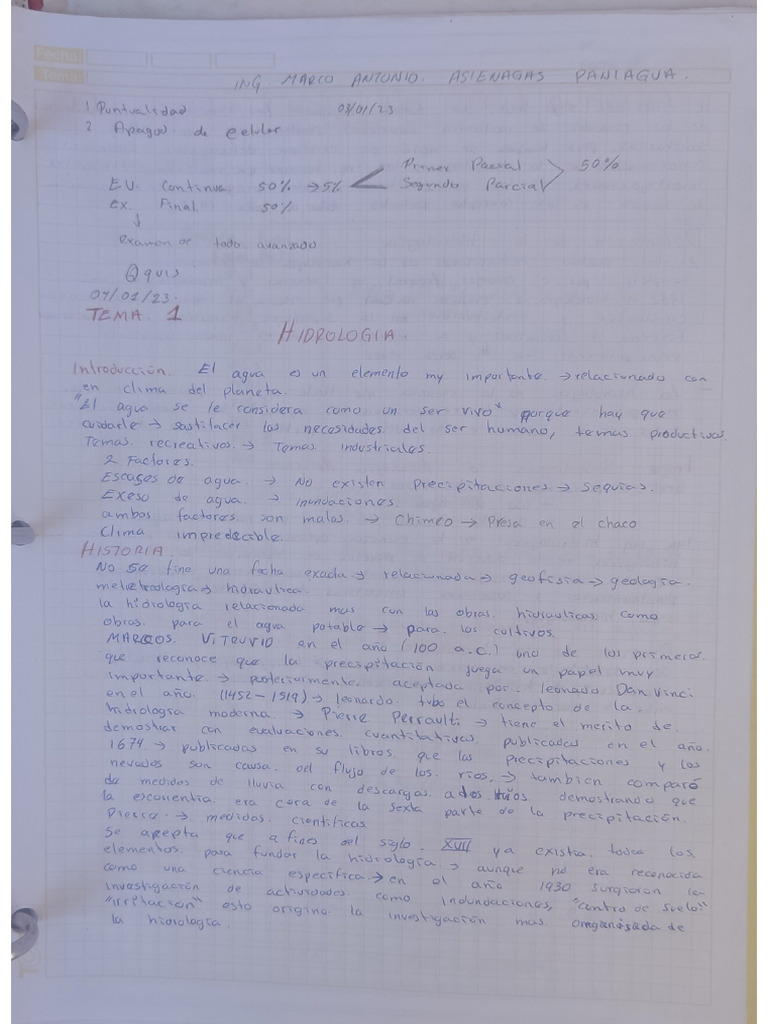 Fecha:
Tema:
ING. MARCO ANTONIO. ASIENAGAS PANIAGUA.
1 Puntualidad 03/01/23
2 Apagar de celular
EV. Continua. 50% → 5% < Primer Parcial Segundo Parcial > 50%
Ex. Final. 50%
↓
examen de todo avanzado
Qquis
04/01/23.
TEMA. 1
HIDROLOGIA.
Introducción. El agua es un elemento my importante. → relacionado con
en clima del planeta.
"El agua se le considera como un ser vivo" porque hay que
cuidarle → sastifacer las necesidades del ser humano, temas productivos
Temas. recreativos. → Temas industriales.
2 Factores.
Escases de agua. → No existen Precipitacciones → Sequias.
Exeso de agua. → inundaciones.
ambos factores son malos. → Chimeo → Presa en el chaco
Clima impredecible.
HISTORIA.
No se fine una facha exada → relacionada → geofisia → geologia.
→ hidraulica.
la hidrologia relacionada mas con las obras. hidraulicas. como
obras. para el agua potable → para. los cultivos.
MARCOS. VITRUVIO en el año (100 a.c.) uno de los primeros.
que reconoce que la precipitación juega un papel muy
importante → posteriormente. aceptada por. leonado Dan Vinci
en el año. (1452-1519) → leonardo. tubo el concepto de la.
hidrologia moderna. → Pierre Perrault. → tiene el merito de.
demostrar con evaluaciones. cuantitativas publicadas en el año.
1674 → publicadas en su libros. que las precipitaciones y los
nevados son causa. del flujo de los. rios, → tambien comparó
de medidos de lluvia con descargas. a dos rios demostrando que
la escorrentia. era cerca de la sexta parte de la precipitación.
Pierre. → medidas. cientificas.
Se acepta que a fines del siglo. XVII ya existia. todos los
elementos. para fundar la hidrologia → aunque no era reconocida
como una ciencia especifica. → en el año 1930 surgieron la
investigación de actividades. como indundaciones, "contro de suelo."
"irretacion" esto origino la investigación mas organisada de
la hidrologia.